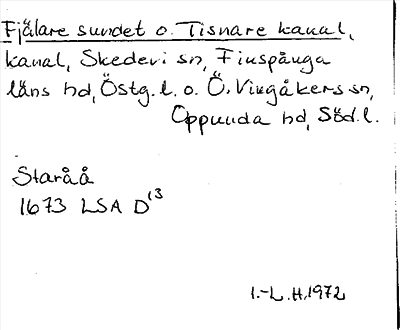 Fjälare sundet o. Tisnare kanal,
kanal, Skedevi sn, Finspånga
läns hd, Östg. l. o. Ö. Vingåkers sn,
Oppunda hd, Söd. l.
Staråå
1673 LSA D13
I.-L. H. 1972